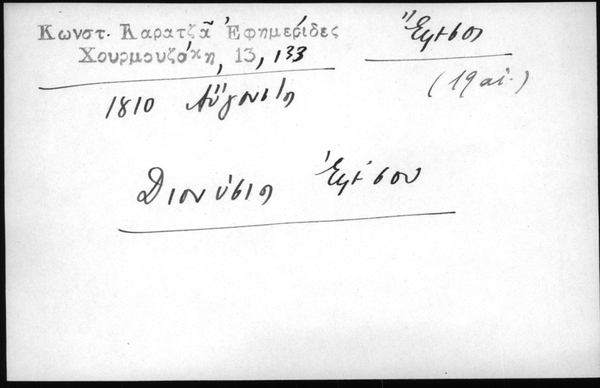 Κωνστ. Καρατζᾶ Ἐφημερίδες
Χουρμουζάκη, 13, 133
Ἔφεσος
(19 αἰ.)
1810 Αὔγουστος
Διονύσιος Ἐφέσου